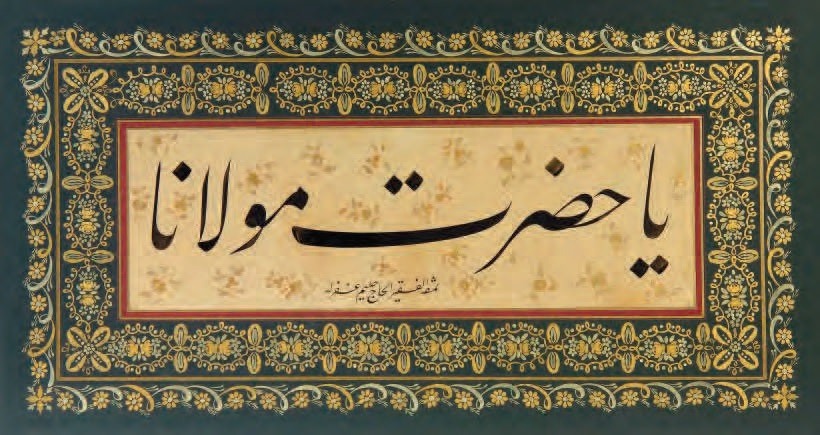 يا حضرت مولانا
نمقه الفقير الحاج حليم غفرله